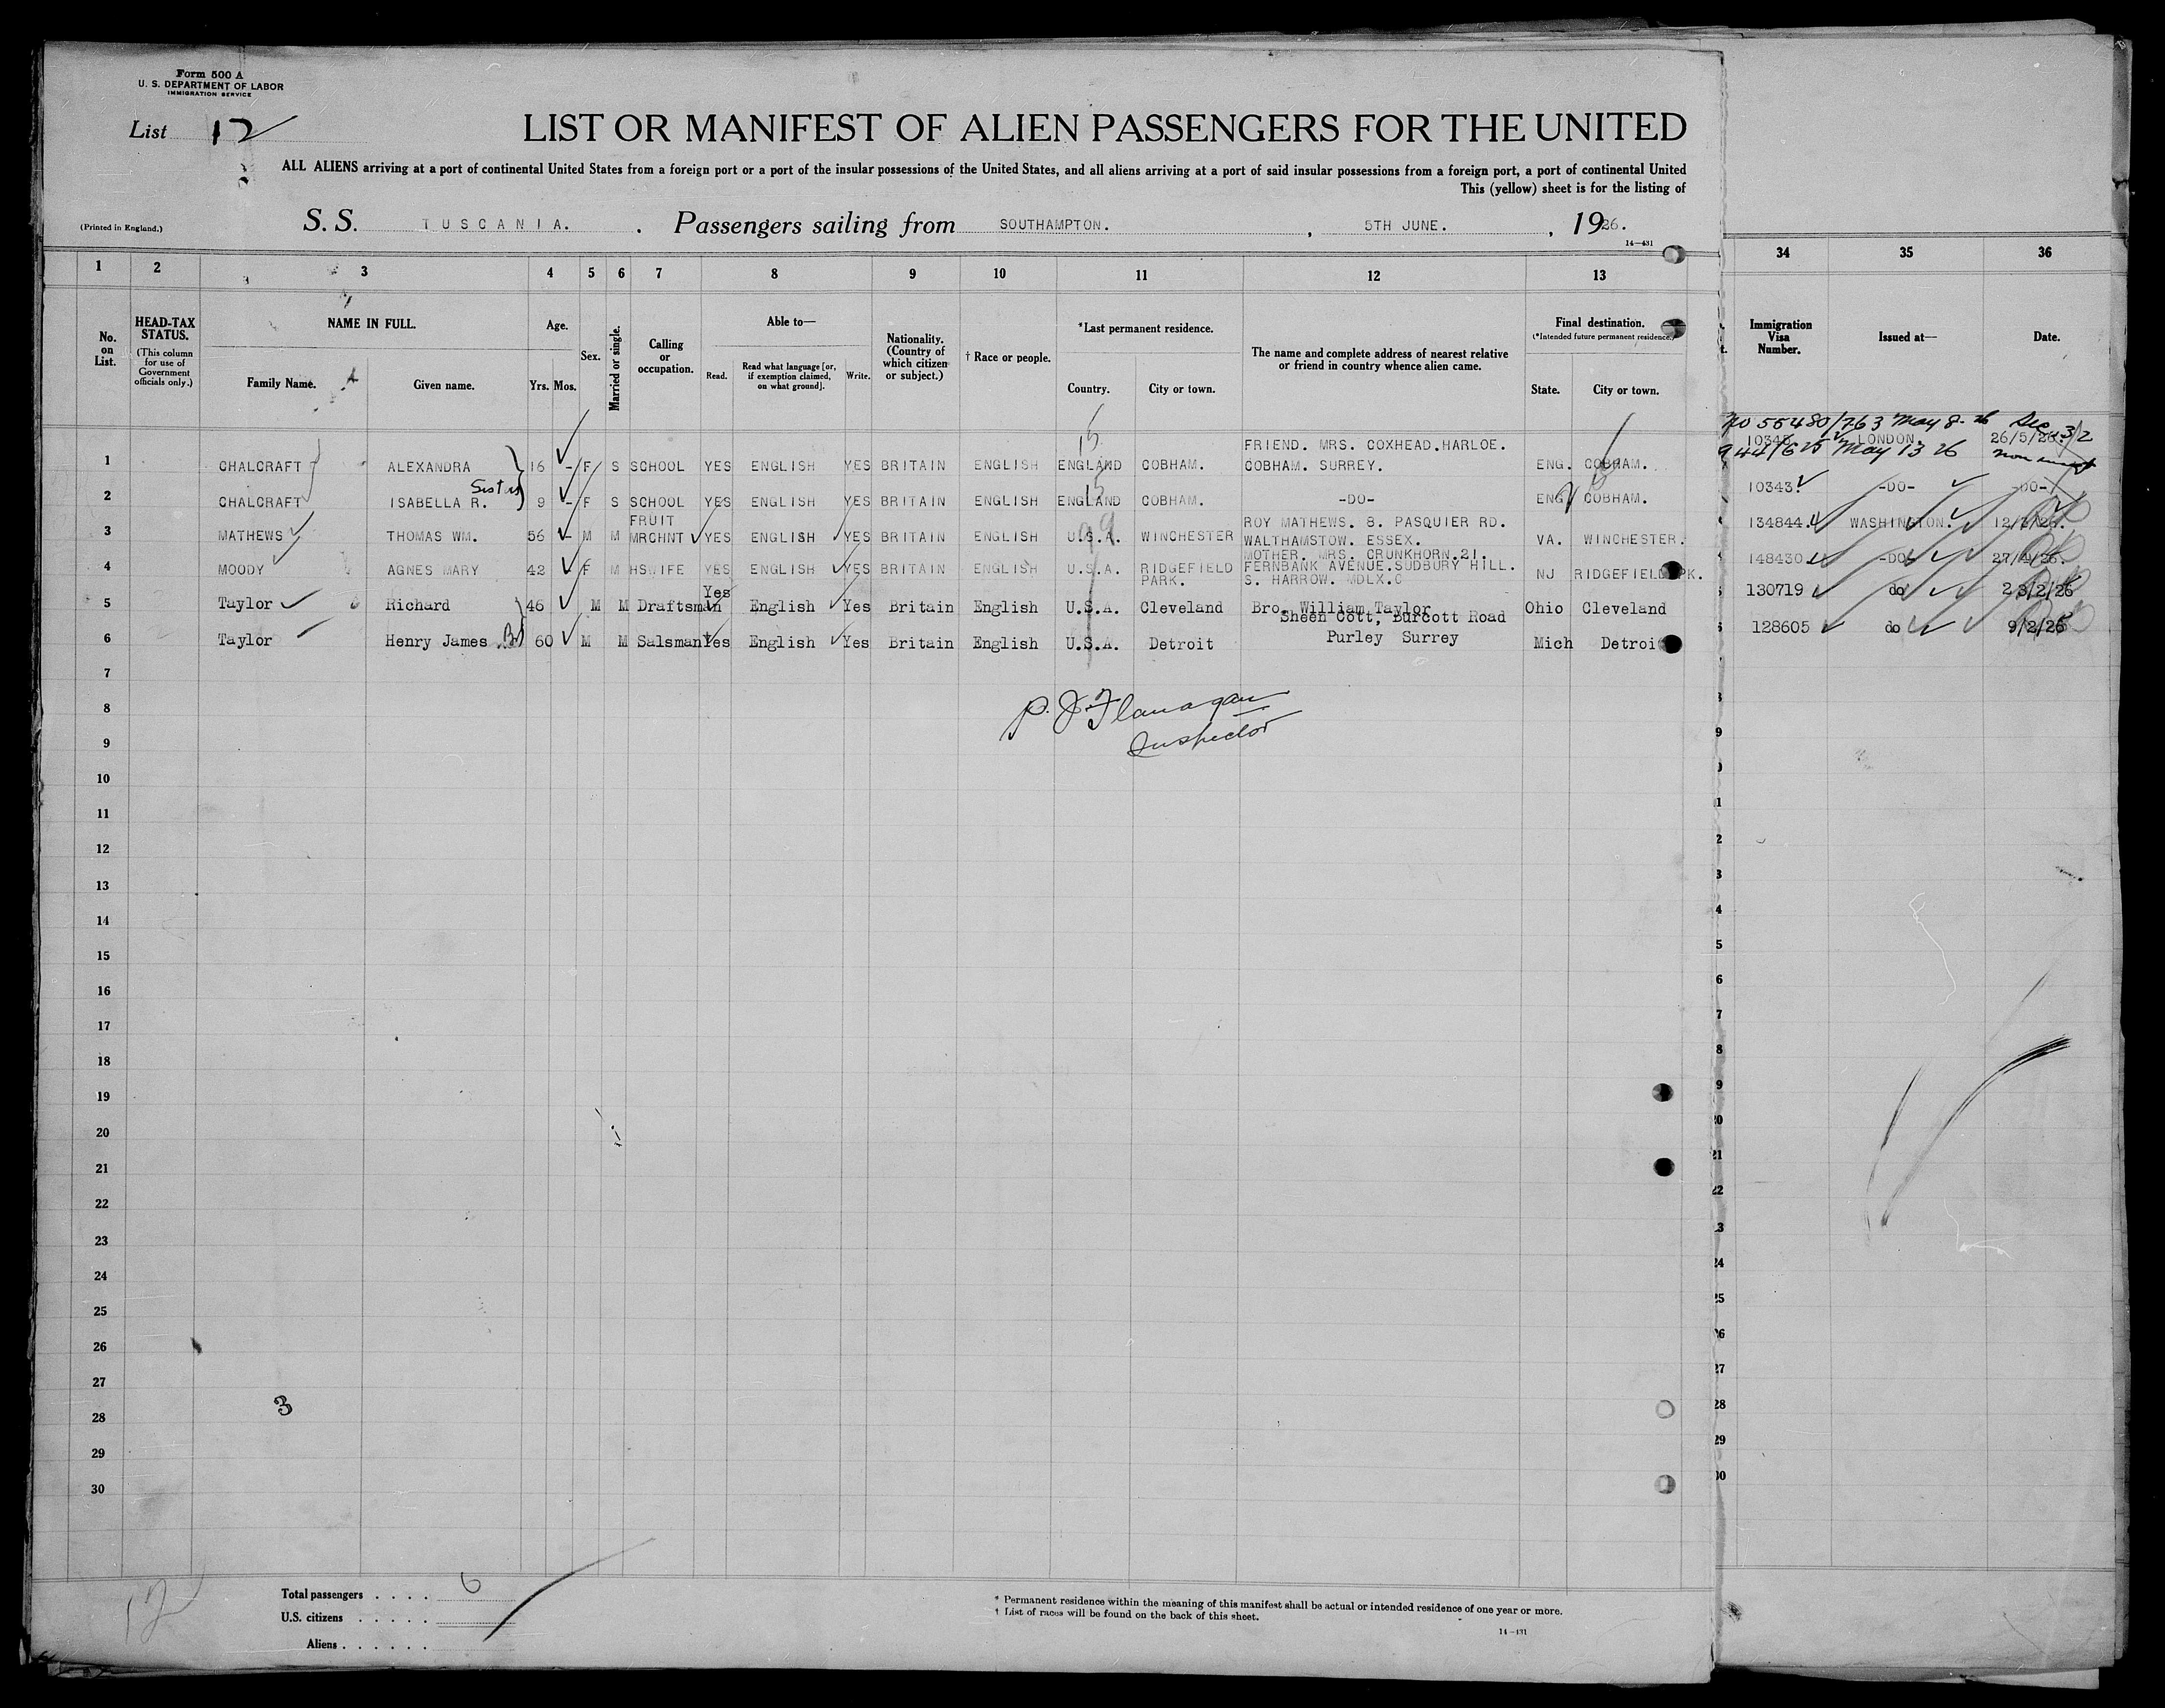 Form 500 A
U. S. DEPARTMENT OF LABOR
IMMIGRATION SERVICE
List 12
LIST OR MANIFEST OF ALIEN PASSENGERS FOR THE UNITED
ALL ALIENS arriving at a port of continental United States from a foreign port or a port of the insular possessions of the United States, and all aliens arriving at a port of said insular possessions from a foreign port, a port of continental United
This (yellow) sheet is for the listing of
(Printed in England.) S. S. TUSCANIA. . Passengers sailing from SOUTHAMPTON. , 5TH JUNE. , 1926.
14—431
1 2 3 4 5 6 7 8 9 10 11 12 13 34 35 36
No. on List.
HEAD-TAX STATUS.
(This column for use of Government officials only.)
NAME IN FULL.
Family Name. Given name.
Age.
Yrs. Mos.
Sex.
Married or single.
Calling or occupation.
Able to—
Read. Read what language [or, if exemption claimed, on what ground]. Write.
Nationality. (Country of which citizen or subject.)
† Race or people.
*Last permanent residence.
Country. City or town.
The name and complete address of nearest relative or friend in country whence alien came.
Final destination.
(*Intended future permanent residence.)
State. City or town.
Immigration Visa Number.
Issued at—
Date.
No 55480/763 May 8-26
944/625 May 13 26
1 CHALCRAFT ALEXANDRA 16 - F S SCHOOL YES ENGLISH YES BRITAIN ENGLISH ENGLAND COBHAM. FRIEND. MRS. COXHEAD.HARLOE. COBHAM. SURREY. ENG. COBHAM. LONDON. 26/5/26
Sisters
2 CHALCRAFT ISABELLA R. 9 - F S SCHOOL YES ENGLISH YES BRITAIN ENGLISH ENGLAND COBHAM. -DO- ENG COBHAM. 10343. -DO- -DO-
3 MATHEWS THOMAS WM. 56 - M M FRUIT MRCHNT YES ENGLISH YES BRITAIN ENGLISH U.S.A. WINCHESTER ROY MATHEWS. 8. PASQUIER RD. WALTHAMSTOW. ESSEX. VA. WINCHESTER. 134844. WASHINGTON.
4 MOODY AGNES MARY 42 - F M HSWIFE YES ENGLISH YES BRITAIN ENGLISH U.S.A. RIDGEFIELD PARK. MOTHER. MRS. CRUNKHORN.21. FERNBANK AVENUE.SUDBURY HILL. S. HARROW. MDLX. NJ RIDGEFIELD PK. 148430 -DO- 27/4/26.
5 Taylor Richard 46 M M Draftsman Yes English Yes Britain English U.S.A. Cleveland Bro. William Taylor Ohio Cleveland 130719 do
6 Taylor Henry James 60 M M Salsman Yes English Yes Britain English U.S.A. Detroit Sheen Cott, Burcott Road Purley Surrey Mich Detroit 128605 do 9/2/26
7
8
9
P. J. Flanagan
Inspector
10
11
12
13
14
15
16
17
18
19
20
21
22
23
24
25
26
27
28
29
30
3
12
Total passengers . . . . 6
U.S. citizens . . . . .
Aliens . . . . . .
* Permanent residence within the meaning of this manifest shall be actual or intended residence of one year or more.
† List of races will be found on the back of this sheet.
14—431